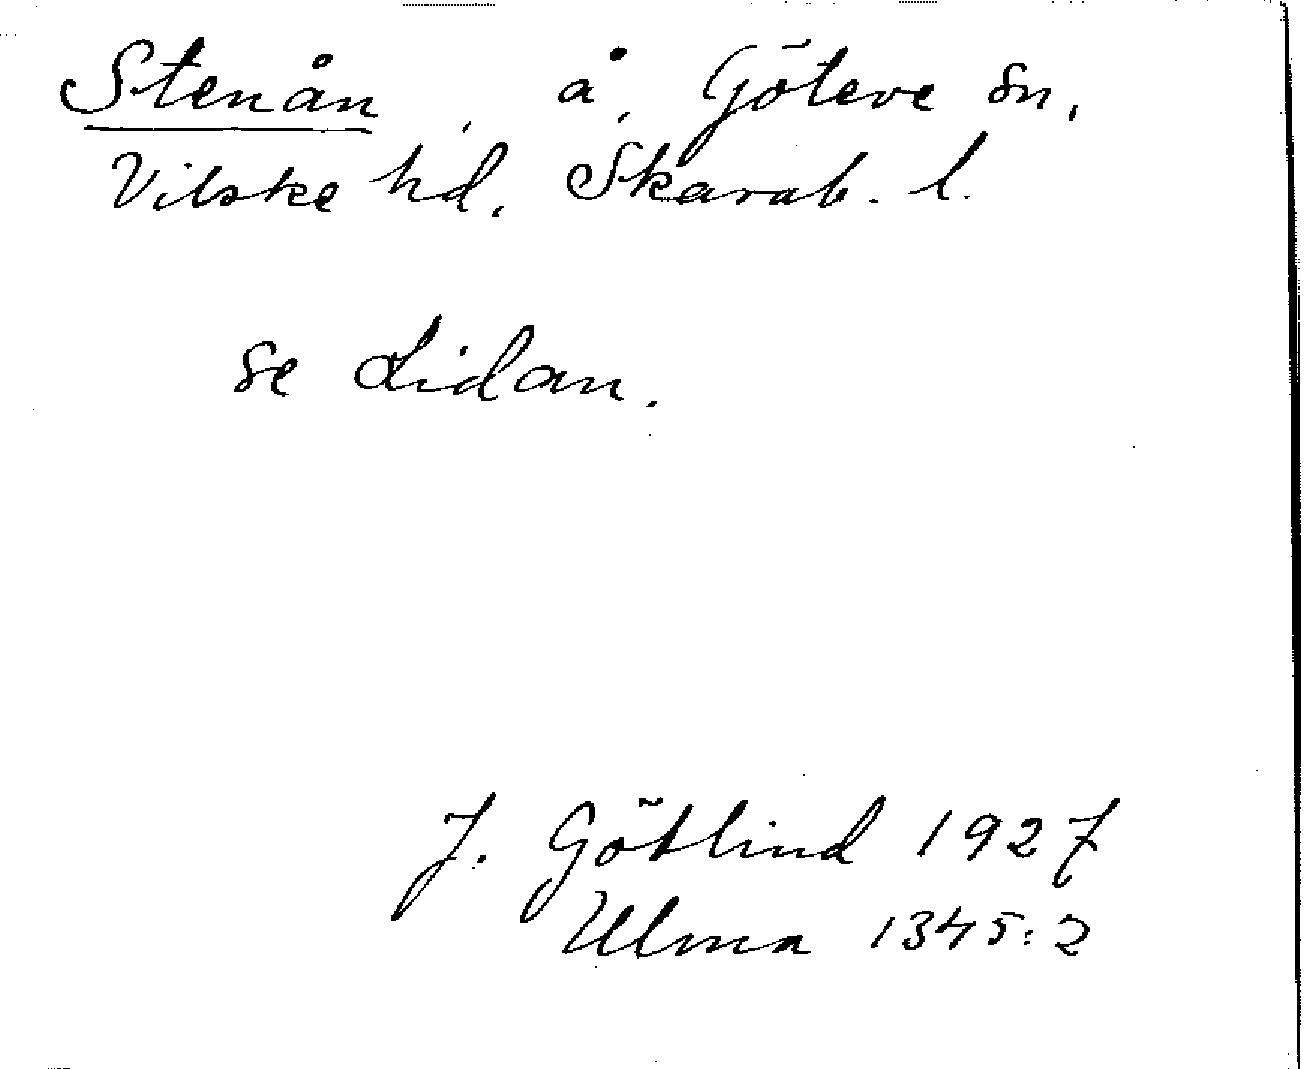 Stenån, å, Göteve sn,
Vilske hd, Skarab. l.
se Lidan.
J. Götlind 1927
Ulma 1345:2